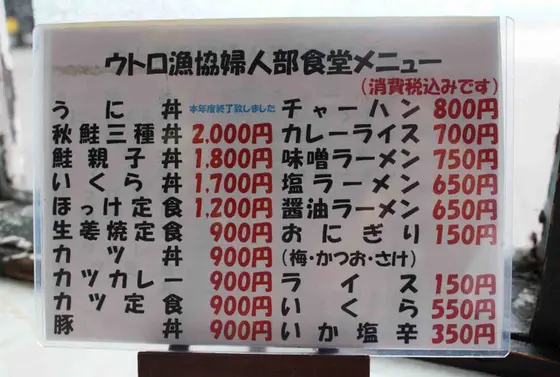 ウトロ漁協婦人部食堂メニュー
(消費税込みです)
うに丼 本年度終了致しました
秋鮭三種丼 2,000円
鮭親子丼 1,800円
いくら丼 1,700円
ほっけ定食 1,200円
生姜焼定食 900円
カツ丼 900円
カツカレー 900円
カツ定食 900円
豚丼 900円
チャーハン 800円
カレーライス 700円
味噌ラーメン 750円
塩ラーメン 650円
醤油ラーメン 650円
おにぎり 150円
(梅・かつお・さけ)
ライス 150円
いくら 550円
いか塩辛 350円